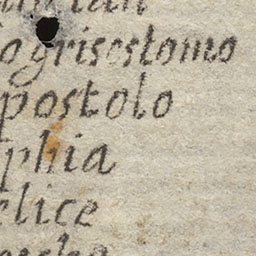 ogrisostomo
postolo
phia
elice